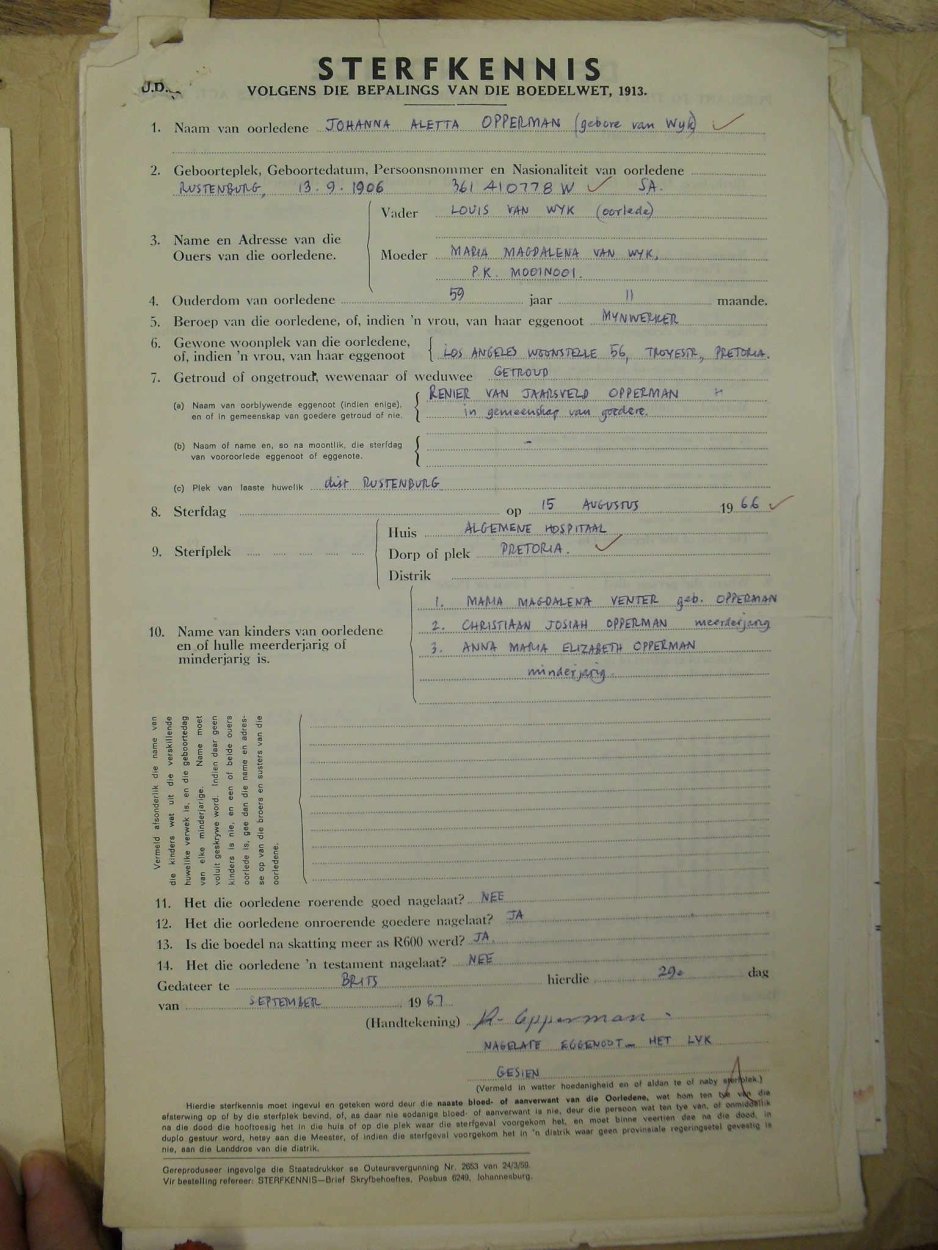 STERFKENNIS
J.D.
VOLGENS DIE BEPALINGS VAN DIE BOEDELWET, 1913.
1. Naam van oorledene JOHANNA ALETTA OPPERMAN (gebore van Wyk)
2. Geboorteplek, Geboortedatum, Persoonsnommer en Nasionaliteit van oorledene
RUSTENBURG, 13.9.1906 361 410778 W SA.
3. Name en Adresse van die Ouers van die oorledene.
Vader LOUIS VAN WYK (oorlede)
Moeder MARIA MAGDALENA VAN WYK,
P.K. MOOINOOI.
4. Ouderdom van oorledene 59 jaar 11 maande.
5. Beroep van die oorledene, of, indien 'n vrou, van haar eggenoot MYNWERKER
6. Gewone woonplek van die oorledene,
of, indien 'n vrou, van haar eggenoot LOS ANGELES WOONSTELLE 56, TROYESTR, PRETORIA.
7. Getroud of ongetroud, wewenaar of weduwee GETROUD
(a) Naam van oorblywende eggenoot (indien enige), RENIER VAN JAARSVELD OPPERMAN
en of in gemeenskap van goedere getroud of nie. in gemeenskap van goedere.
(b) Naam of name en, so na moontlik, die sterfdag -
van vooroorlede eggenoot of eggenote.
(c) Plek van laaste huwelik dist RUSTENBURG
8. Sterfdag op 15 AUGUSTUS 1966
9. Sterfplek
Huis ALGEMENE HOSPITAAL
Dorp of plek PRETORIA.
Distrik
10. Name van kinders van oorledene
en of hulle meerderjarig of
minderjarig is.
1. MARIA MAGDALENA VENTER geb. OPPERMAN
2. CHRISTIAAN JOSIAH OPPERMAN meerderjarig
3. ANNA MARIA ELIZABETH OPPERMAN
minderjarig.
Vermeld afsonderlik die name van
die kinders wat uit die verskillende
huwelike verwek is, en die geboortedag
van elke minderjarige. Name moet
voluit geskrywe word. Indien daar geen
kinders is nie, en een of beide ouers
oorlede is, gee dan die name en adres-
se op van die broers en susters van die
oorledene.
11. Het die oorledene roerende goed nagelaat? NEE
12. Het die oorledene onroerende goedere nagelaat? JA
13. Is die boedel na skatting meer as R600 werd? JA
14. Het die oorledene 'n testament nagelaat? NEE
Gedateer te BRITS hierdie 29e dag
van SEPTEMBER 1967
(Handtekening) R. Opperman
NAGELATE EGGENOOT HET LYK
GESIEN
(Vermeld in watter hoedanigheid en of aldan te of naby sterfplek.)
Hierdie sterfkennis moet ingevul en geteken word deur die naaste bloed- of aanverwant van die Oorledene, wat hom ten tye van die
afsterwing op of by die sterfplek bevind, of, as daar nie sodanige bloed- of aanverwant is nie, deur die persoon wat ten tye van, of onmiddellik
na die dood die hooftoesig het in die huis of op die plek waar die sterfgeval voorgekom het, en moet binne veertien dae na die dood, in
duplo gestuur word, hetsy aan die Meester, of indien die sterfgeval voorgekom het in 'n distrik waar geen provinsiale regeringsetel gevestig is
nie, aan die Landdros van die distrik.
Gereproduseer ingevolge die Staatsdrukker se Outeursvergunning Nr. 2653 van 24/3/59.
Vir bestelling refereer: STERFKENNIS—Brief Skryfbehoeftes, Posbus 6249, Johannesburg.